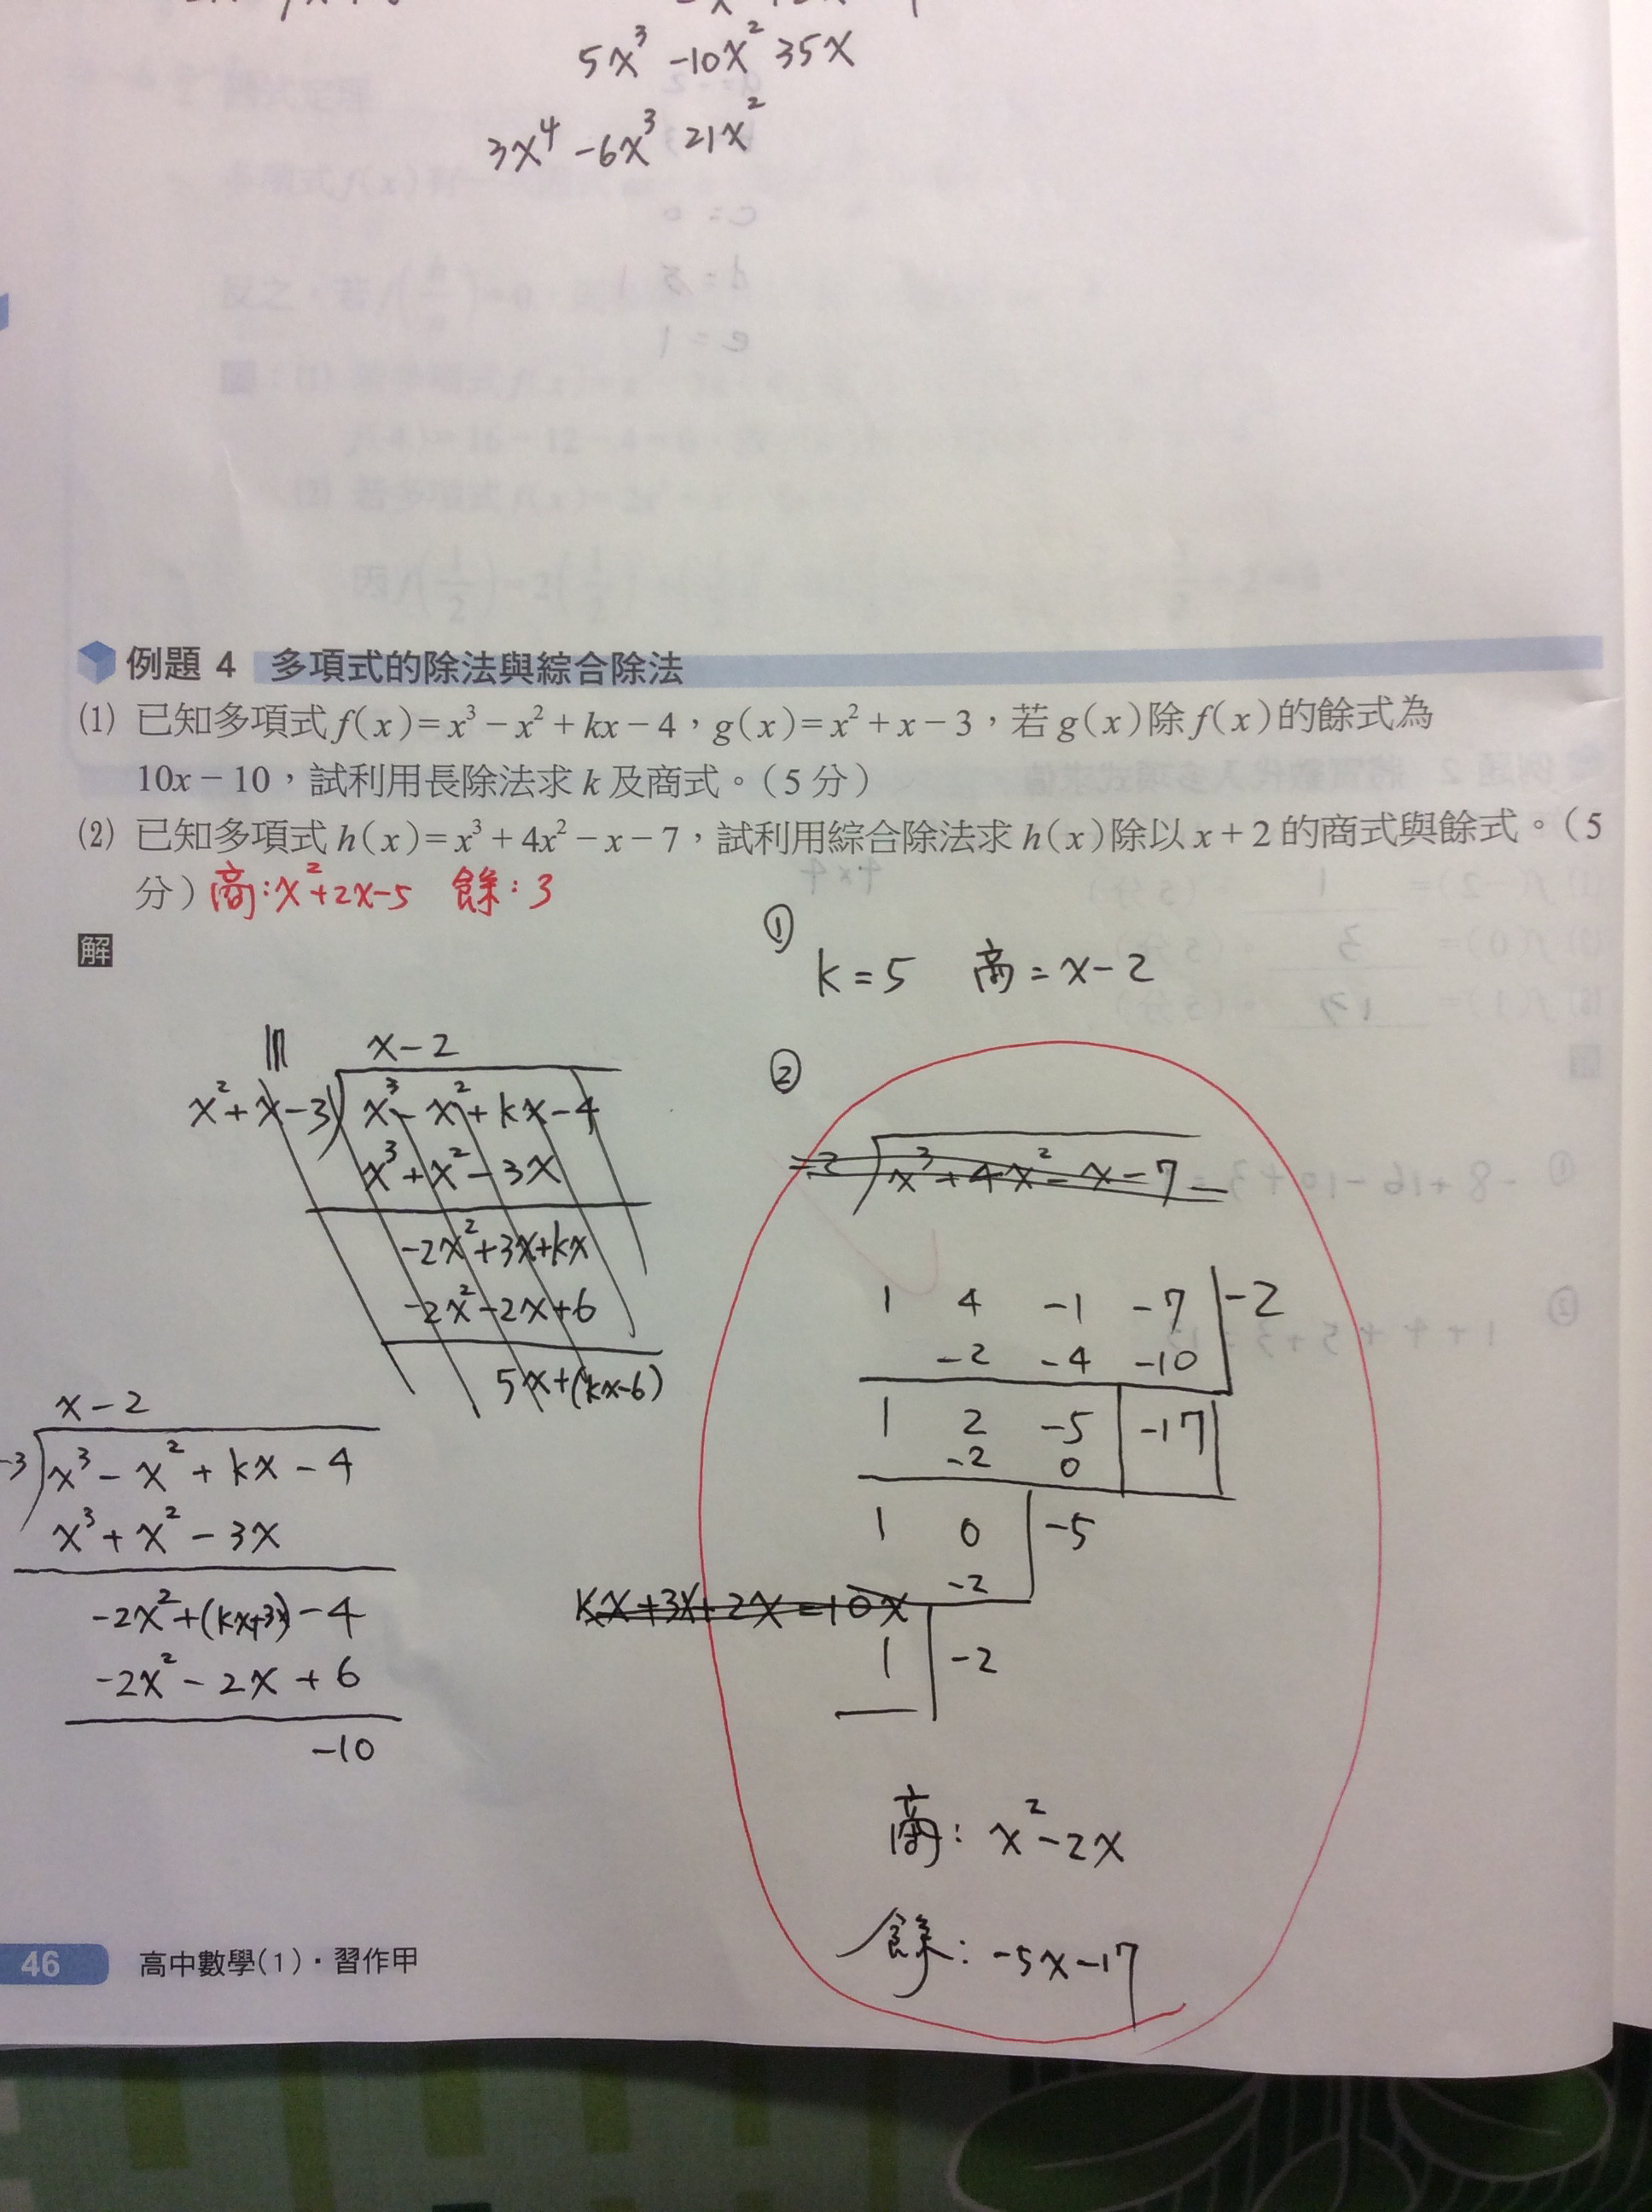 5x³ -10x² 35x
3x⁴ -6x³ 21x²
例題 4 多項式的除法與綜合除法
(1) 已知多項式 f(x)=x³-x²+kx-4，g(x)=x²+x-3，若 g(x)除 f(x)的餘式為
10x-10，試利用長除法求 k 及商式。（5 分）
(2) 已知多項式 h(x)=x³+4x²-x-7，試利用綜合除法求 h(x)除以 x+2 的商式與餘式。（5
分）商:x²+2x-5 餘:3
解
①
k=5 商=x-2
x-2
x²+x-3 x³-x²+kx-4
x³+x²-3x
-2x²+3x+kx
-2x²-2x+6
5x+(kx-6)
x-2
-3 x³-x²+kx-4
x³+x²-3x
-2x²+(kx+3x)-4
-2x²-2x+6
-10
②
x³+4x²-x-7
1 4 -1 -7 -2
-2 -4 -10
1 2 -5 -17
-2 0
1 0 -5
-2
kx+3x+2x=10x
1 -2
商: x²-2x
餘: -5x-17
46 高中數學(1)．習作甲